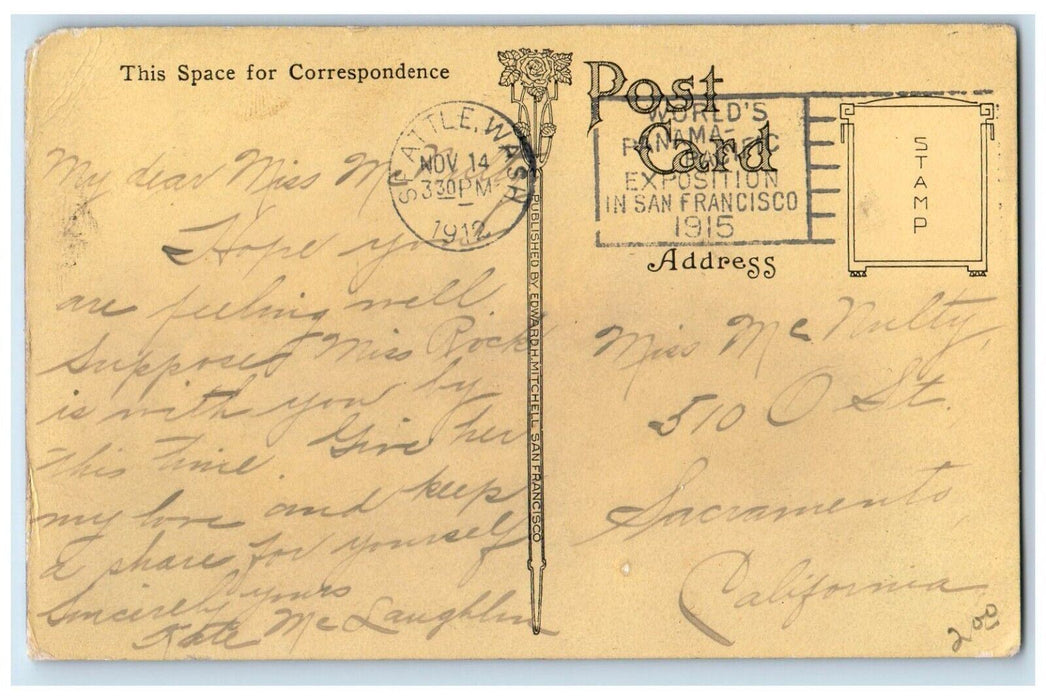 This Space for Correspondence
Post
Card
SEATTLE, WASH
NOV 14
330PM
1912
WORLD'S
PANAMA-
PACIFIC
EXPOSITION
IN SAN FRANCISCO
1915
STAMP
Address
PUBLISHED BY EDWARD H. MITCHELL SAN FRANCISCO
My dear Miss McNulty
Hope you
are feeling well
Suppose Miss Rock
is with you by
this time. Give her
my love and keep
a share for yourself
Sincerely yours
Kate McLaughlin
Miss McNulty,
510 O St.
Sacramento
California
2 00